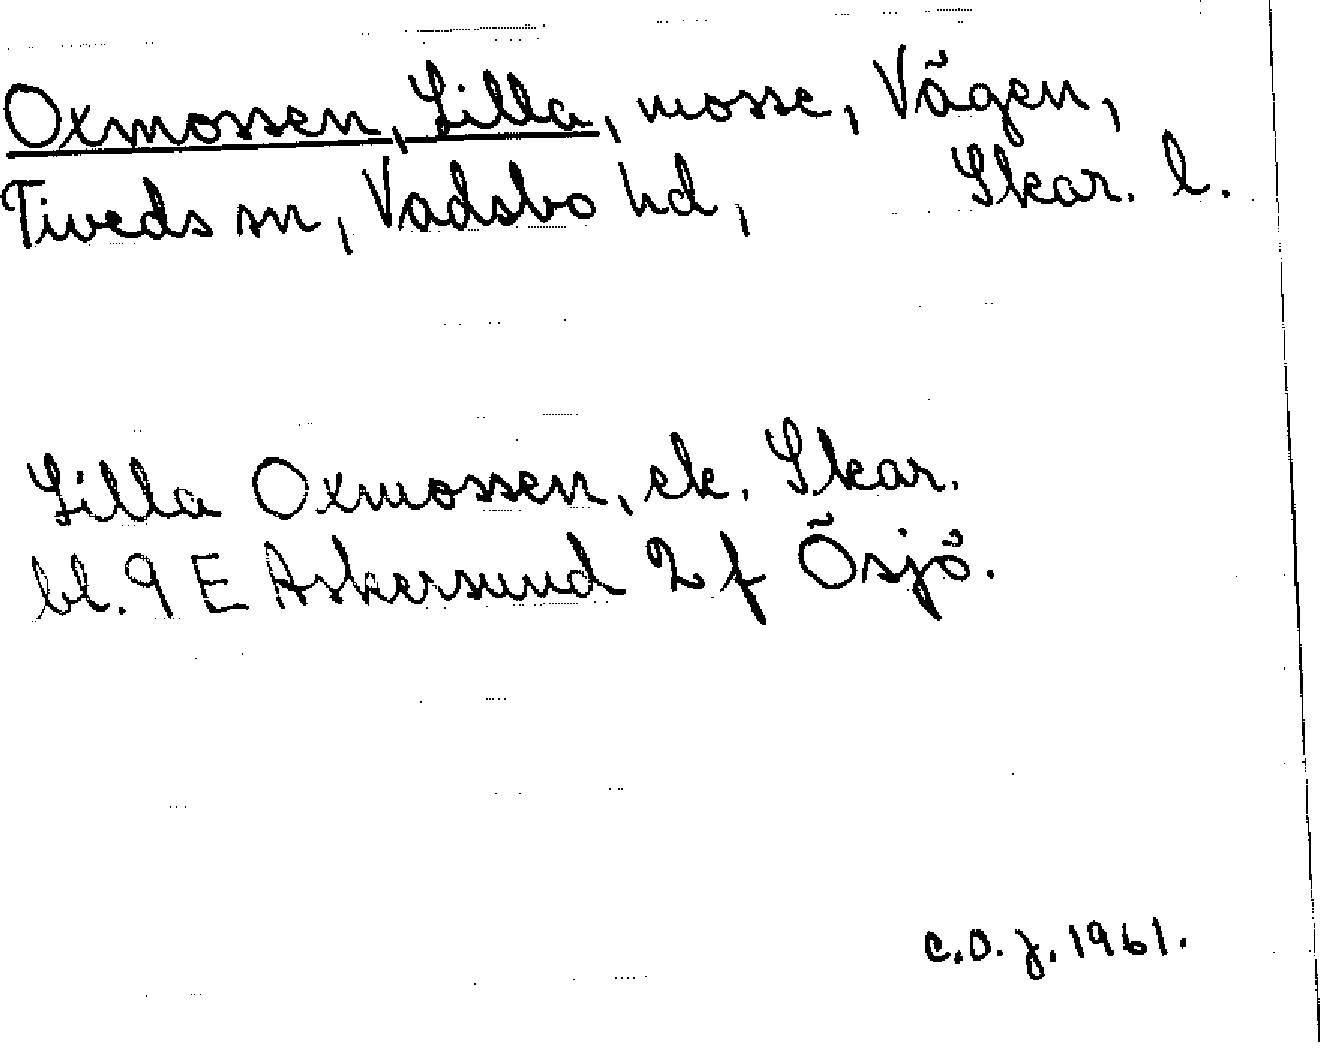 Oxmossen, Lilla, mosse, Vägen,
Tiveds sn, Vadsbo hd, Skar. l.
Lilla Oxmossen, ek. Skar.
bl. 9 E Askersund 2 f Ösjö.
C.O.J. 1961.